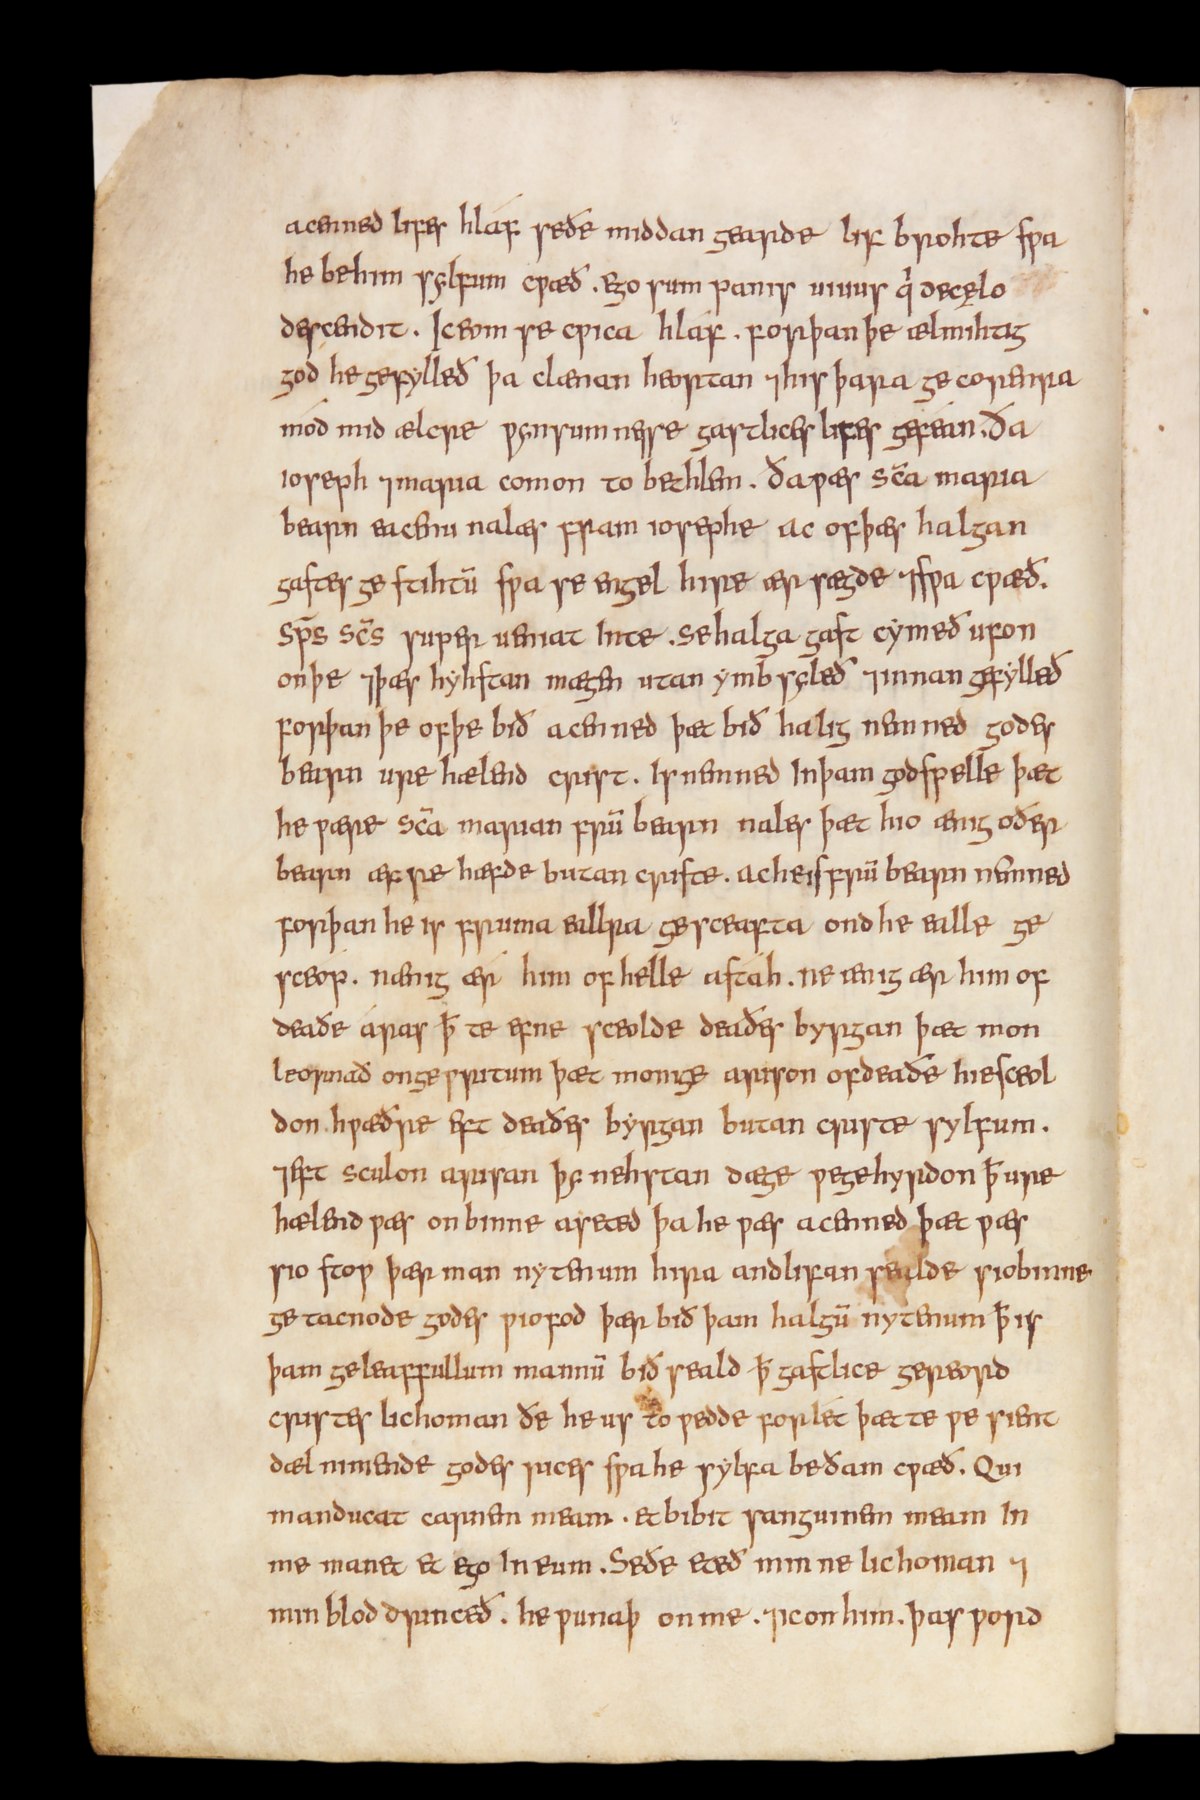 acenned lifes hláf seðe middan gearde lif brohte swa
he be him sylfum cwæð . Ego sum panis uiuus q̇ de cęlo
descendit . Ic eom se cwica hláf . forþan þe ælmihtig
gód he gefylleð þa clænan heortan ⁊ his þara ge corenra
mód mid ælcre wynsumnesse gastlices lifes geféan . Ða
ioseph ⁊ maria comon to bethlem . ða wæs sc̄a maria
bearn eacenu nalæs fram iosephe ac of þæs halgan
gastes ge stihtū swa se engel hire ær sægde ⁊ swa cwæð .
Sp̄s sc̄s super ueniat In te . Se halga gast cymeð ufon
on þe ⁊ þæs hyhstan mægen utan ymb syleð ⁊ innan gefylleð
forþan þe of þe bið acenned þæt bið halig nemned godes
bearn ure hælend crist . Is nemned In þam godspelle þæt
he wære sc̄a marian frū bearn nales þæt hio ænig oðer
bearn æfre hæfde butan criste . ac he is frū bearn nemned
forþan he is fruma eallra gesceafta ond he ealle ge
sceóp . nænig ær him of helle astáh . ne ænig ær him of
deaðe áras þ̄ te efne sceolde deaðes byrgan þæt mon
leornað on gewritum þæt monige arison of deaðe hie sceol
don hwæðre eft deaðes byrgan butan criste sylfum .
⁊ eft sculon arisan þy nehstan dæge we gehyrdon þ̄ ure
hælend wæs on binne aseted þa he wæs acenned þæt wæs
sio stow þær man nytenum hira andlifan sealde sio binne
ge tacnode godes wiofod þær bið þam halgū nytenum þ̄ is
þam geleaffullum mannū bið seald þ̄ gastlice gereord
cristes lichoman ðe he us to wedde forlét þæt te we sient
dæl nimende godes rices swa he sylfa be ðam cwæð . Qui
manducat carnem meam . et bibit sanguinem meam In
me manet et ego In eum . Se ðe eteð minne lichoman ⁊
min blod drinceð . he wunaþ on me . ⁊ ic on him . þas word